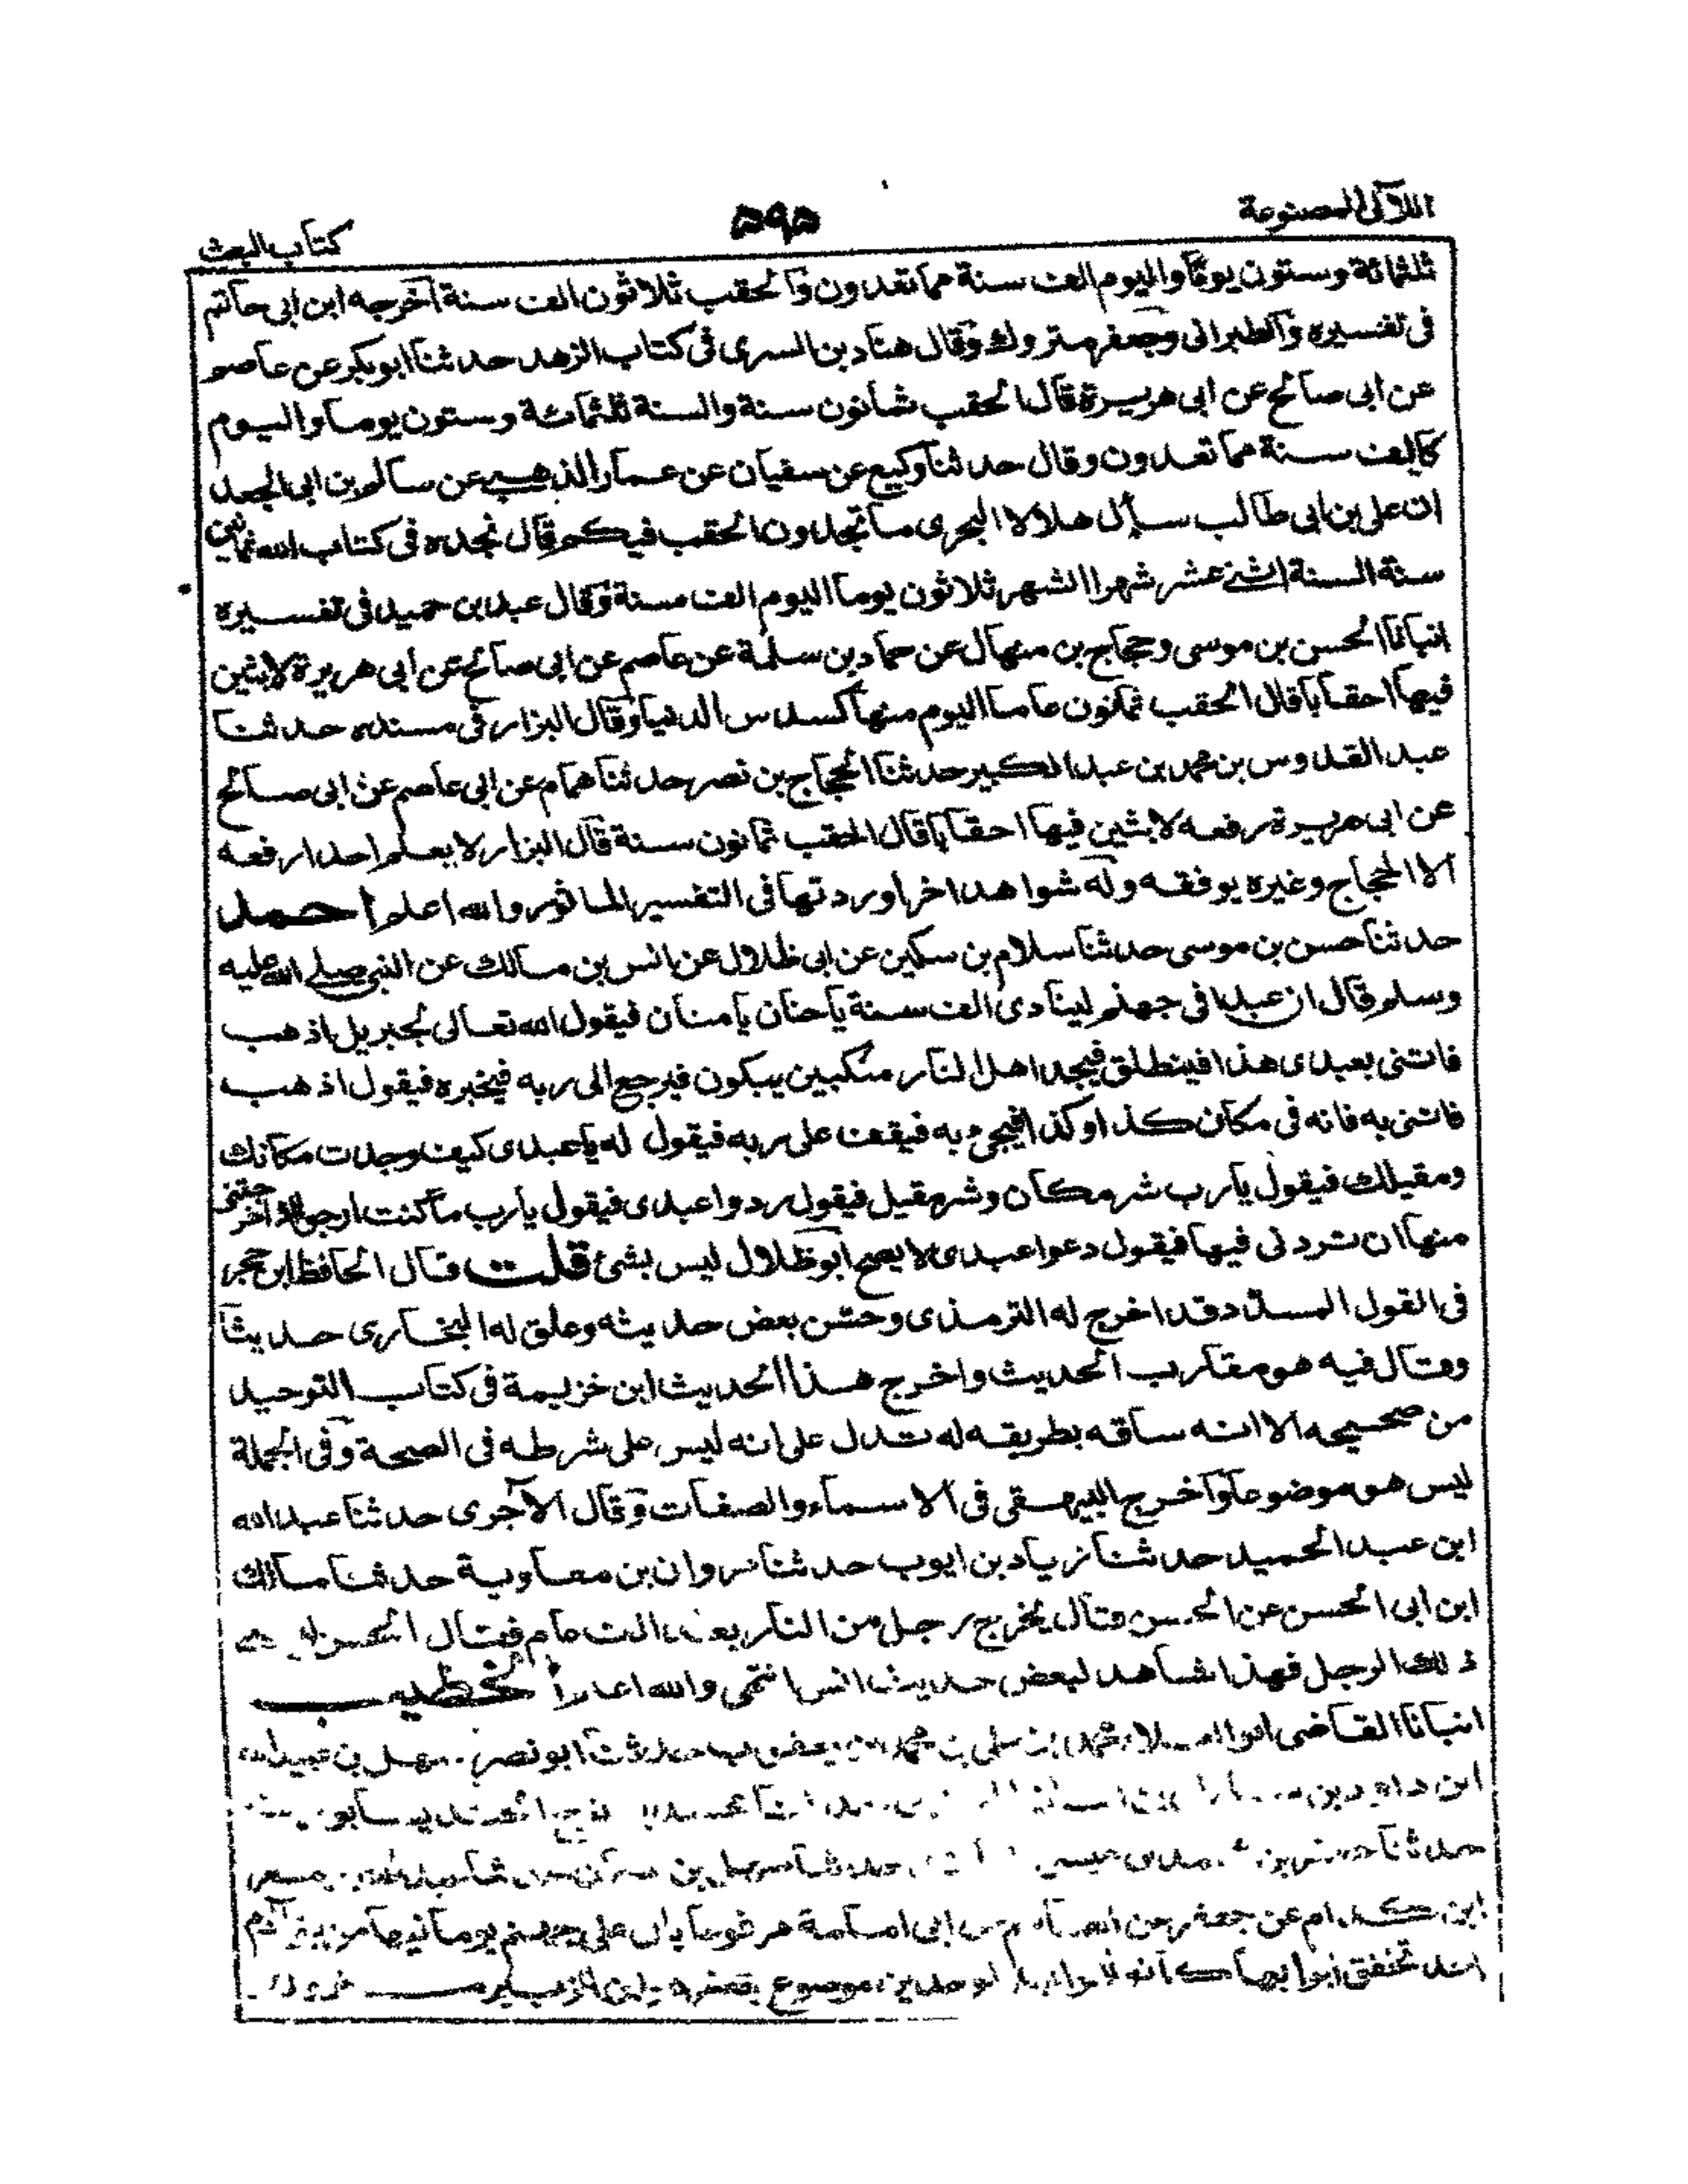 اللآلى المصنوعة
۵۹۵
كتاب البعث
ثلثمائة وستون يوما واليوم الف سنة مما تعدون والحقب ثلاثون الف سنة اخرجه ابن ابى حاتم
فى تفسيره والطبرانى وجعفر متروك وقال هناد بن السرى فى كتاب الزهد حدثنا ابو بكر عن عاصم
عن ابى صالح عن ابى هريرة قال الحقب ثمانون سنة والسنة ثلثمائة وستون يوما واليوم
كالف سنة مما تعدون وقال حدثنا وكيع عن سفيان عن عمار الذهبى عن سالم بن ابى الجعد
ان على بن ابى طالب سأل هلالا الهجرى ما تجدون الحقب فيكم قال نجده فى كتاب الله ثمانين
سنة السنة اثنى عشر شهرا الشهر ثلاثون يوما اليوم الف سنة وقال عبد بن حميد فى تفسيره
انبانا الحسن بن موسى وحجاج بن منهال عن حماد بن سلمة عن عاصم عن ابى صالح عن ابى هريرة لابثين
فيها احقابا قال الحقب ثمانون عاما اليوم منها كسدس الدنيا وقال البزار فى مسنده حدثنا
عبد القدوس بن محمد بن عبد الكبير حدثنا الحجاج بن نصر حدثنا همام عن ابى عاصم عن ابى صالح
عن ابى هريرة رفعه لابثين فيها احقابا قال الحقب ثمانون سنة قال البزار لا يعلم احدا رفعه
الا الحجاج وغيره يوقفه وله شواهد اخر اوردتها فى التفسير الماثور والله اعلم احمد
حدثنا حسن بن موسى حدثنا سلام بن سكين عن ابى ظلال عن انس بن مالك عن النبى صلى الله عليه
وسلم قال ان عبدا فى جهنم لينادى الف سنة يا حنان يا منان فيقول الله تعالى لجبريل اذهب
فاتنى بعبدى هذا فينطلق فيجد اهل النار منكبين يبكون فيرجع الى ربه فيخبره فيقول اذهب
فاتنى به فانه فى مكان كذا وكذا فيجىء به فيقف على ربه فيقول له يا عبدى كيف وجدت مكانك
ومقيلك فيقول يا رب شر مكان وشر مقيل فيقول ردوا عبدى فيقول يا رب ما كنت ارجو اذ اخرجتنى
منها ان تردنى فيها فيقول دعوا عبدى لا يصح ابو ظلال ليس بشئ قلت قال الحافظ ابن حجر
فى القول المسدد قد اخرج له الترمذى وحسن بعض حديثه وعلق له البخارى حديثا
وقال فيه هو مقارب الحديث واخرج هذا الحديث ابن خزيمة فى كتاب التوحيد
من صحيحه الا انه ساقه بطريقه له تدل على انه ليس على شرطه فى الصحة وفى الجملة
ليس هو موضوعا واخرج البيهقى فى الاسماء والصفات وقال الآجرى حدثنا عبد الله
ابن عبد الحميد حدثنا زياد بن ايوب حدثنا مروان بن معاوية حدثنا مالك
ابن ابى الحسن عن الحسن قال يخرج رجل من النار بعد الف عام فقال الحسن
ذلك الرجل فهذا شاهد لبعض حديث انس انتهى والله اعلم الخطيب
انبانا القاضى ابو العلاء محمد بن على بن محمد بن يعقوب حدثنا ابو نصر سهل بن عبيد الله
ابن داود بن
حدثنا عيسى حدثنا سهل بن
ابن كدام عن جعفر عن ابى امامة مرفوعا ياتى على جهنم يوم ما فيها من بنى آدم
احد تخفق ابوابها موضوع جعفر هو ابن الزبير متروك